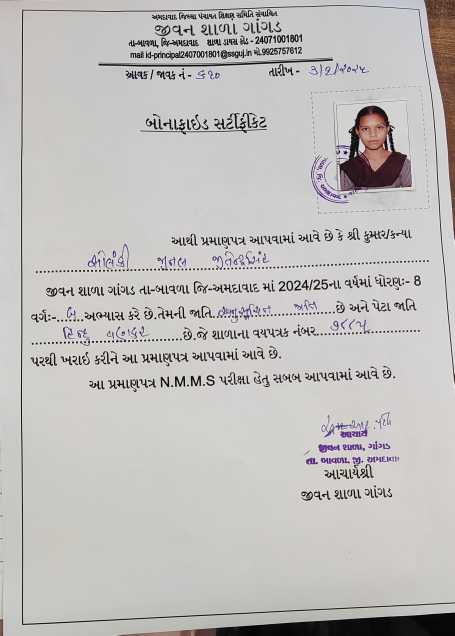 અમદાવાદ જિલ્લા પંચાયત શિક્ષણ સમિતિ સંચાલિત
જીવન શાળા ગાંગડ
તા-બાવળા, જિ-અમદાવાદ શાળા ડાયસ કોડ - 24071001801
mail id-principal2407001801@ssguj.in મો.9925757612
આવક / જાવક નં - ૬૨૦ તારીખ -
બોનાફાઇડ સર્ટીફીકેટ
આથી પ્રમાણપત્ર આપવામાં આવે છે કે શ્રી કુમાર/કન્યા
સોલંકી
જીવન શાળા ગાંગડ તા-બાવળા જિ-અમદાવાદ માં 2024/25ના વર્ષમાં ધોરણ:- 8
વર્ગ:-...અભ્યાસ કરે છે.તેમની જાતિ..અનુસૂચિત જાતિ...છે અને પેટા જાતિ
હિન્દુ વણકર...છે.જે શાળાના વયપત્રક નંબર...
પરથી ખરાઇ કરીને આ પ્રમાણપત્ર આપવામાં આવે છે.
આ પ્રમાણપત્ર N.M.M.S પરીક્ષા હેતુ સબબ આપવામાં આવે છે.
આચાર્ય
જીવન શાળા, ગાંગડ
તા. બાવળા, જી. અમદાવાદ
આચાર્યશ્રી
જીવન શાળા ગાંગડ